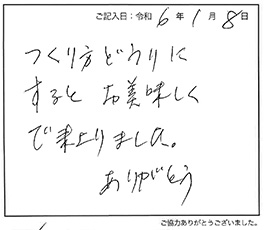 ご記入日：令和 6 年 1 月 8 日
つくり方どうりに
すると お美味しく
で来上りました。
ありがとう
ご協力ありがとうございました。